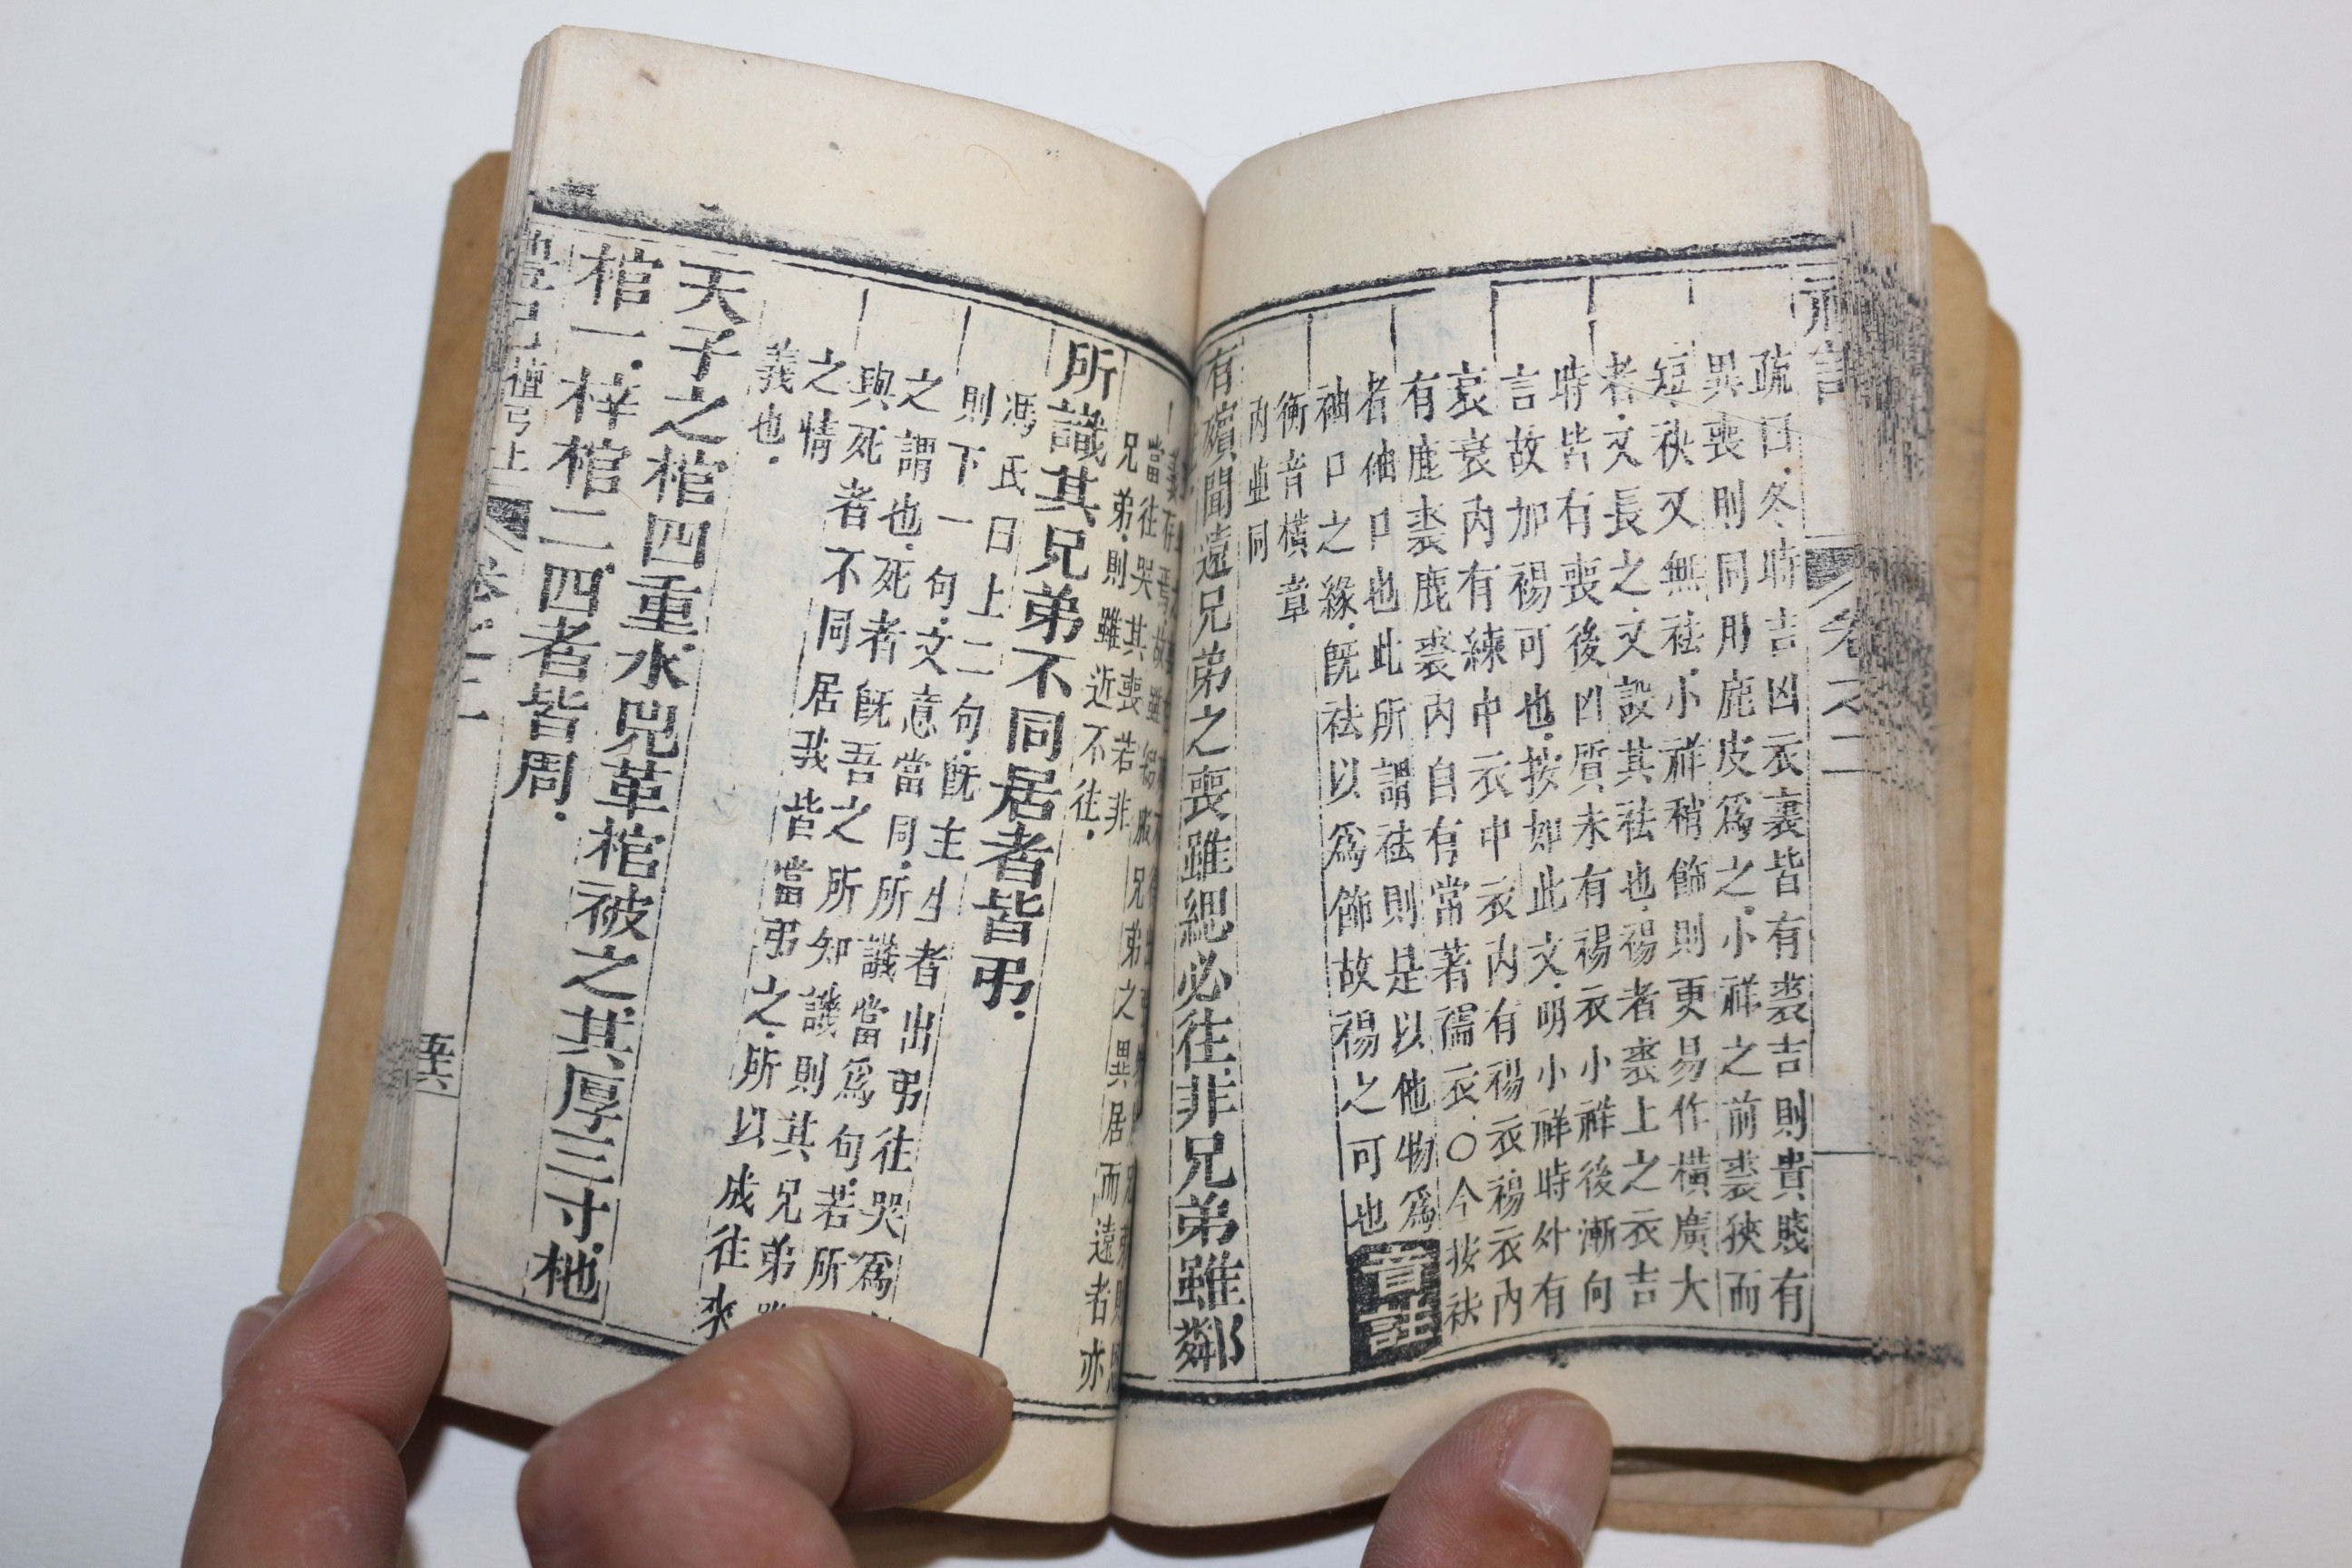 禮記 卷之二
疏曰.冬時吉凶衣裏皆有裘吉則貴賤有
異喪則同用鹿皮爲之.小祥之前裘狹而
短.袂又無袪.小祥稍飾則更易作橫廣大
者.又長之.又設其袪也.裼者裘上之衣吉
時皆有喪後凶質未有裼衣小祥後漸向
言故加裼可也.按如此文.明小祥時外有
衰衰內有練中衣中衣內有裼衣裼衣內
有鹿裘鹿裘內自有常著襦衣.○今按袂
者袖口也此所謂袪則是以他物爲
袖口之緣.旣袪以爲飾故裼之可也 音註
衡音橫章
內並同
有殯聞遠兄弟之喪雖緦必往非兄弟雖鄰
兄弟之異居而遠者亦
當往哭其喪若非
兄弟.則雖近不往.
所識其兄弟不同居者皆弔.
馮氏曰上二句.旣主生者出弔往哭爲
則下一句.文意當同.所識當爲句.若所
之謂也.死者旣吾之所知識則其兄弟
與死者不同居我皆當弔之.所以成往來
之情
義也.
天子之棺四重水兕革棺被之其厚三寸.杝
棺一.梓棺二.四者皆周.
禮記 檀弓上 卷之二 五六